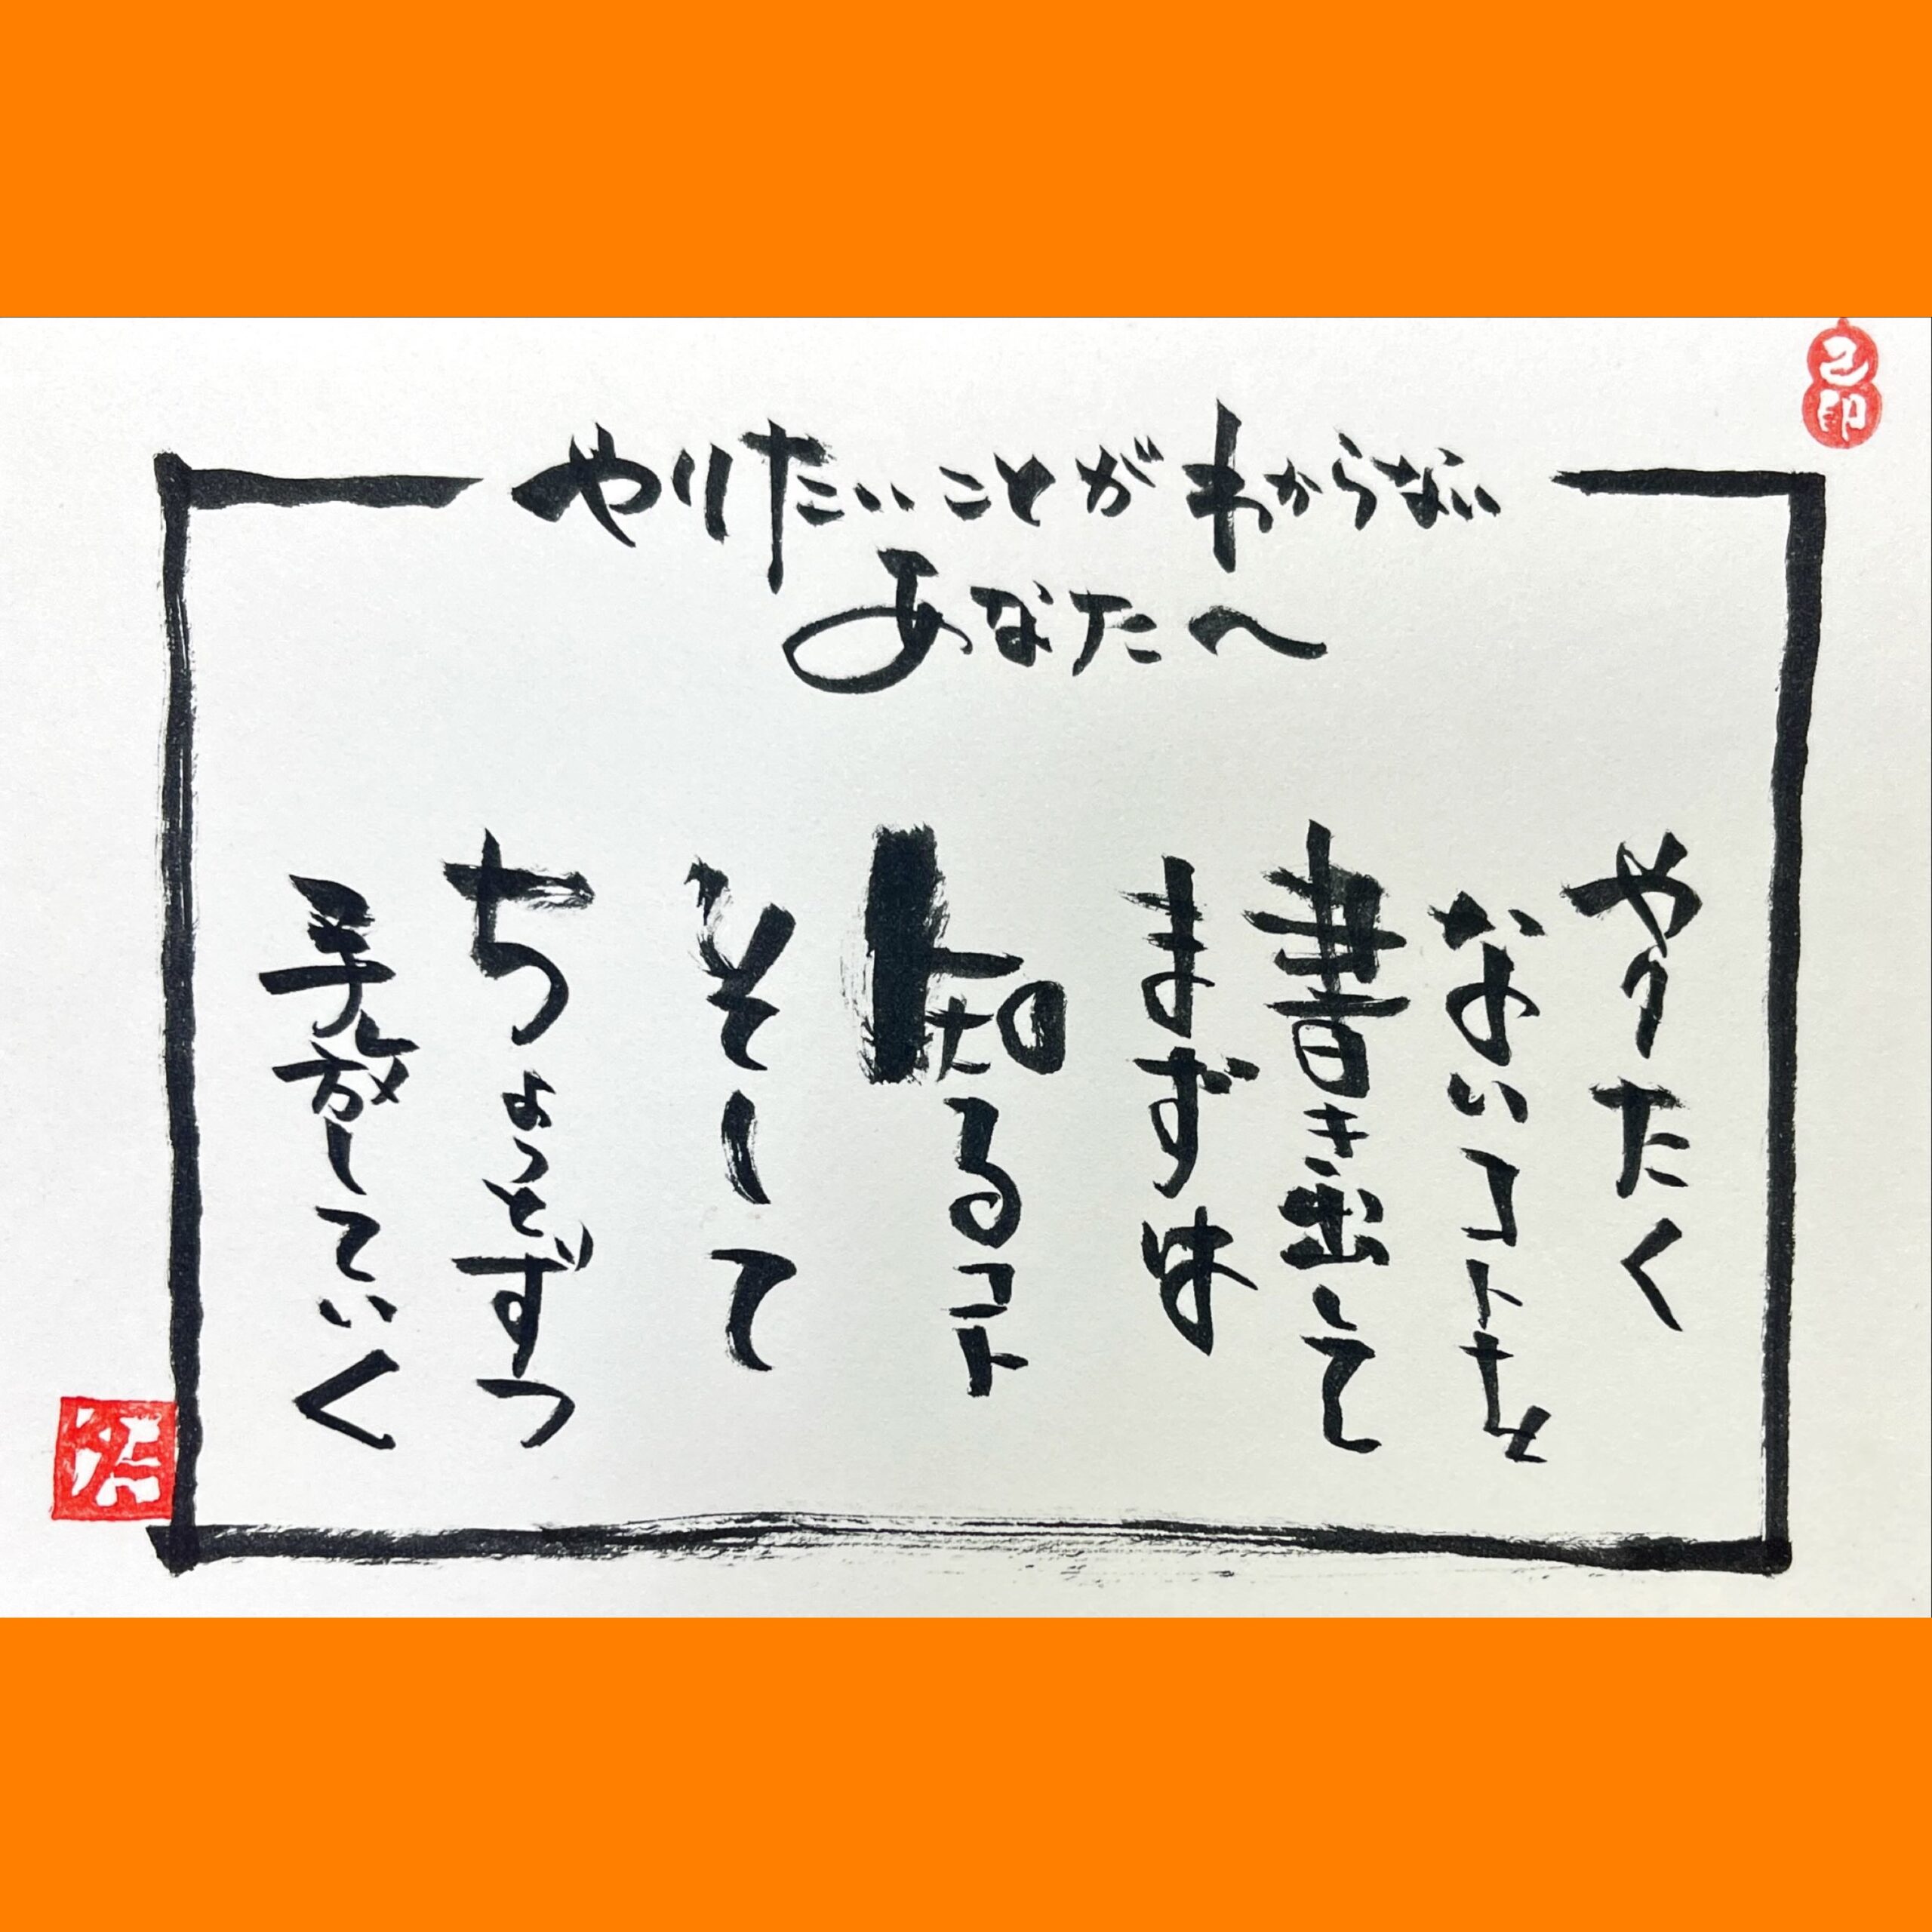 やりたいことがわからない
あなたへ
やりたく
ないコトを
書き出して
まずは
知るコト
そして
ちょっとずつ
手放していく
己印